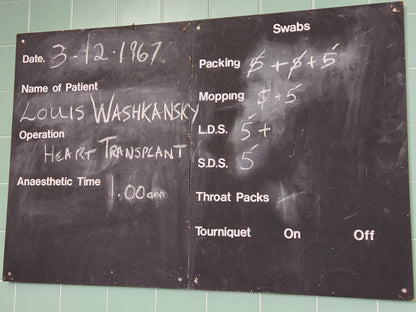 Date. 3.12.1967
Name of Patient
LOUIS WASHKANSKY
Operation
HEART TRANSPLANT
Anaesthetic Time 1.00am
Swabs
Packing 5 + 5 + 5
Mopping 5 + 5
L.D.S. 5 +
S.D.S. 5
Throat Packs –
Tourniquet On Off